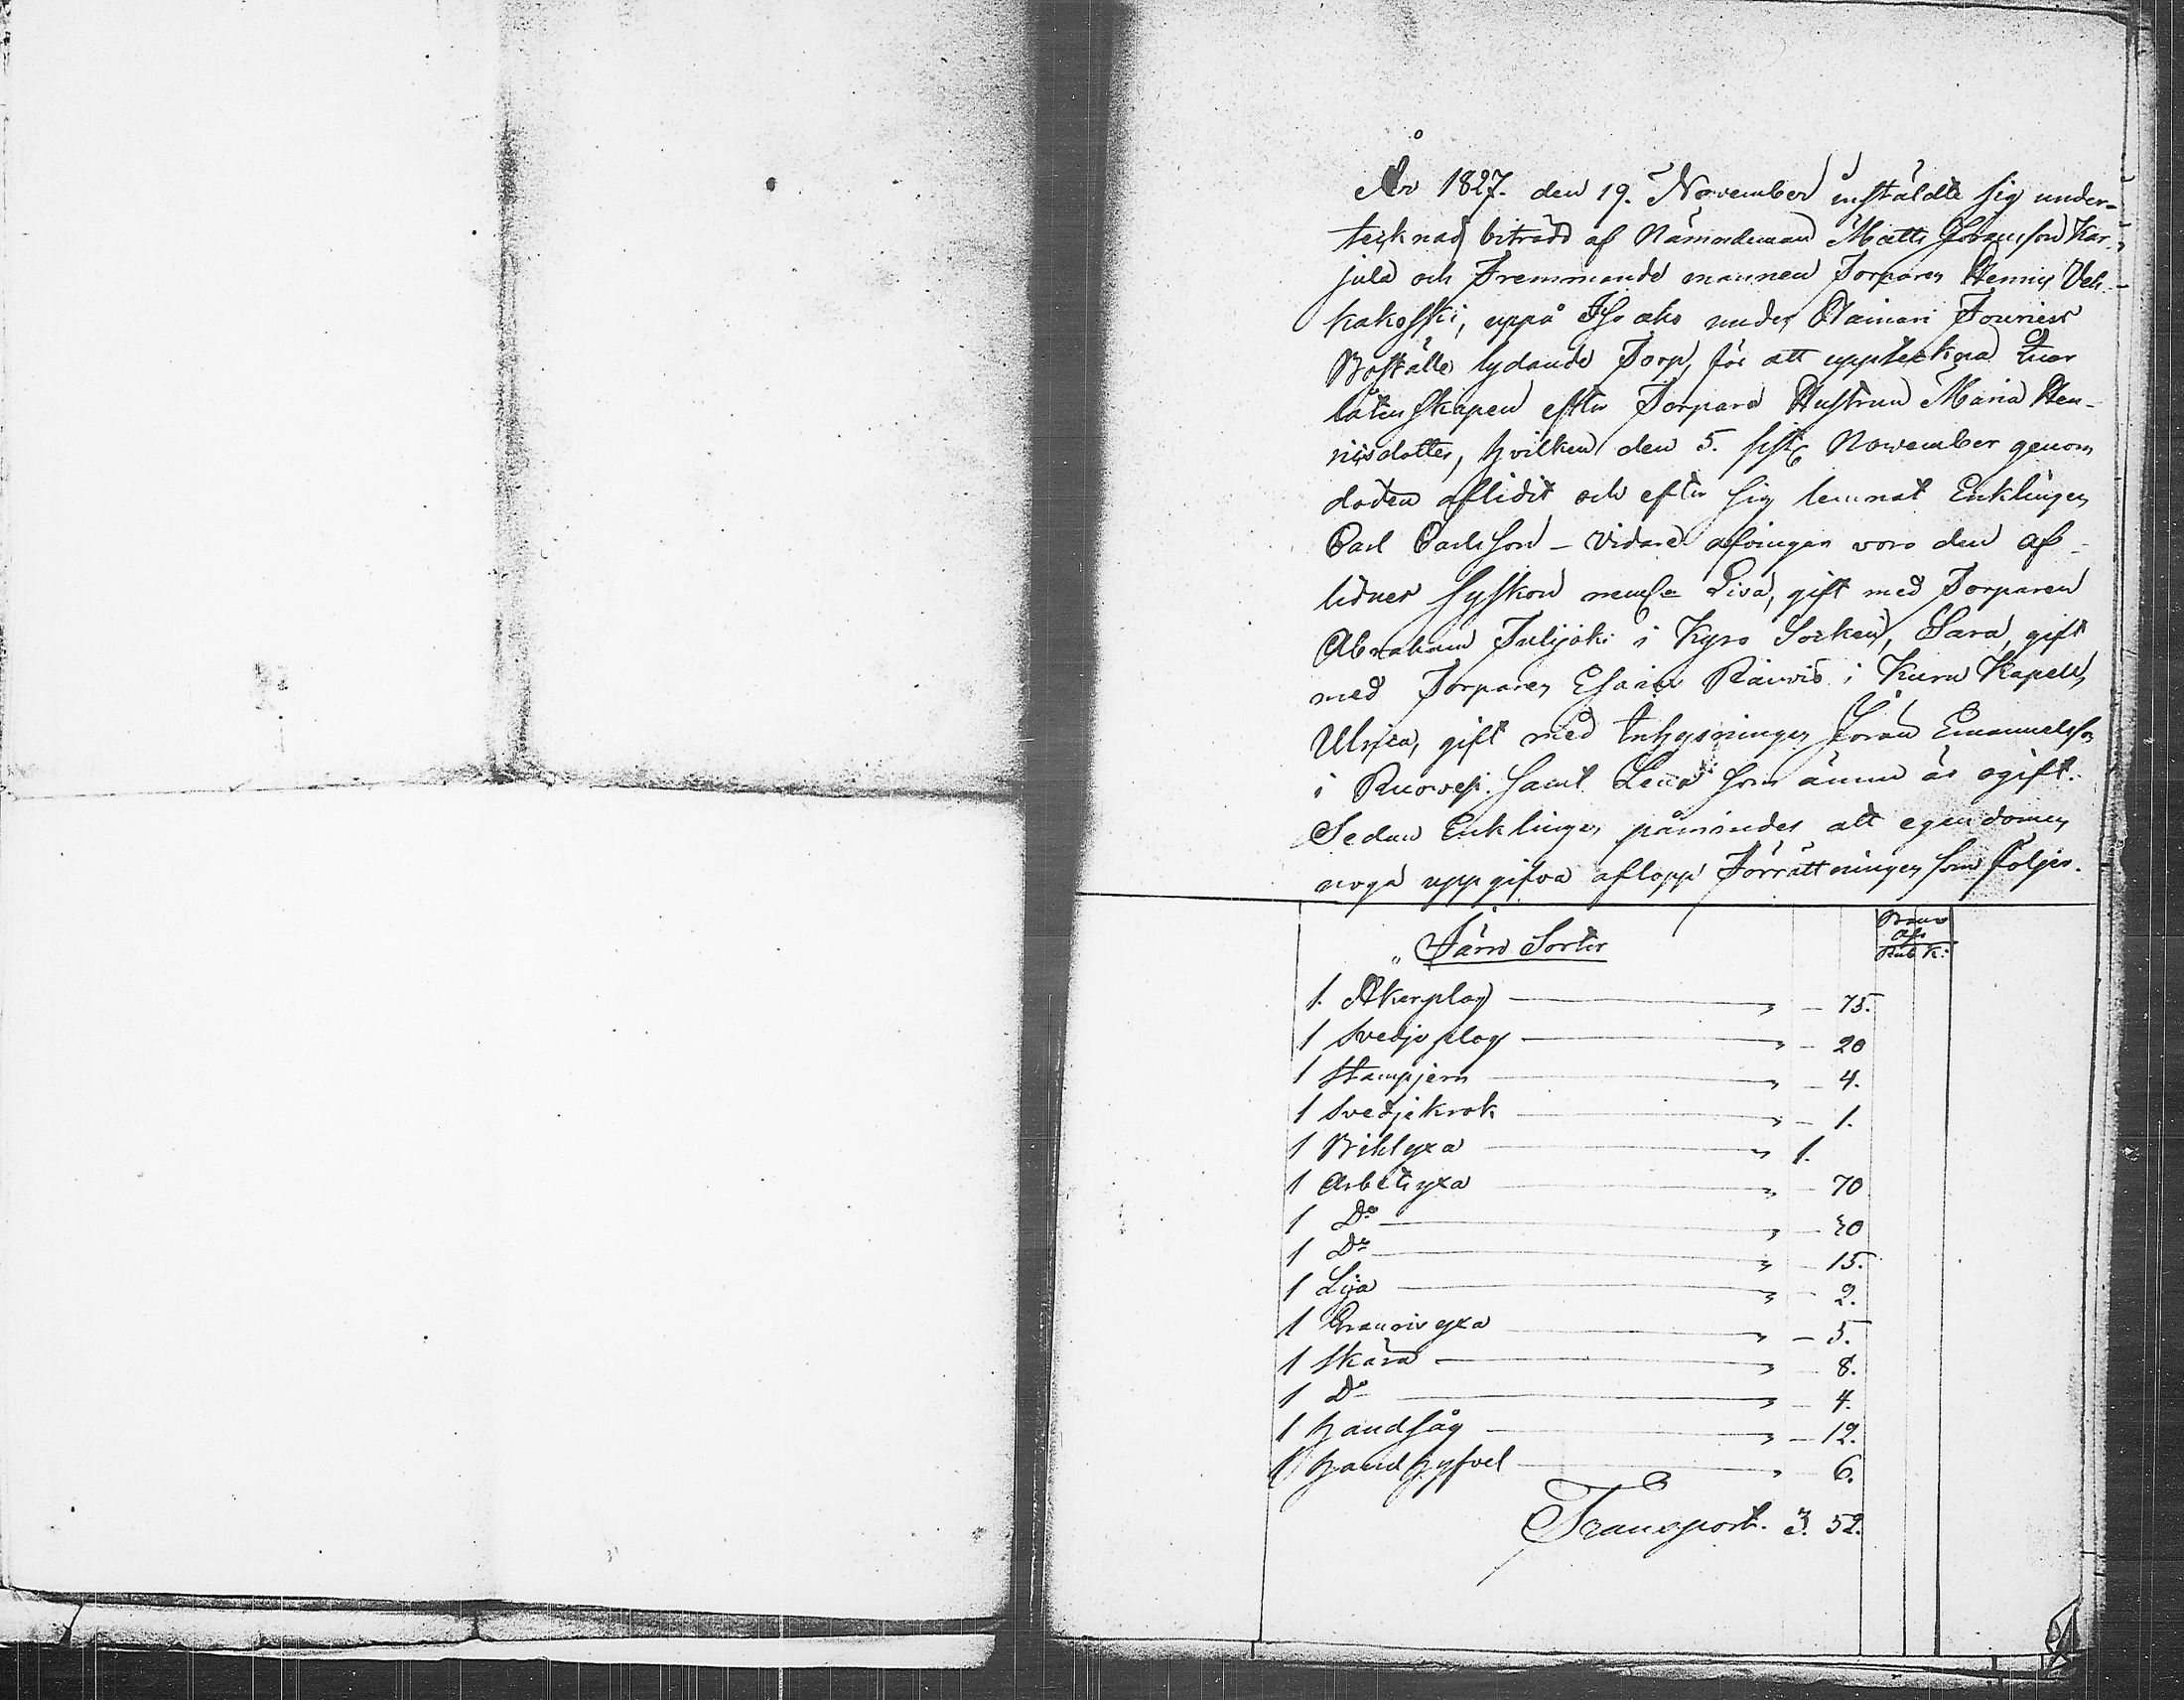 År 1827. den 19. November instäldte sig under-
tecknad biträdd af Nämndeman Matts Jöransson Kar-
jula och Fremmande mannen Torparen Hennig Veh-
kakoski, uppå Aho under Hainari Fouriers
Boställe lydande Torp, för att uppteckna Qvar
låtenskapen efter Torpare Hustrun Maria Hen-
nisdotter, hvilken den 5. sistl. November genom
döden aflidit och efter sig lemnat Enklingen
Carl Carlsson – vidare arfvingar voro den af-
lidnes Syskon neml. Lisa, gift med Torparen
Abraham Tulijoki i Kyro Socken, Sara, gift
med Torparen Esaias Raiviö i Kuru Kapell,
Ulrica, gift med Inhysningen Jöran Emanuelsson
i Ruovesi. Samt Lena som ännu är ogift.
Sedan Enklingen påmindes att egendomen
noga uppgifva aflopp Förrättningen som följer.
Banco
Ass.
Rub K:
„ Järn Sorter
1. Åkerplog „ – 75.
1 Svedje plog „ – 20
1 Stampjern „ – 4.
1 Svedjekrok „ – 1.
1 Bihlyxa „ 1.
1 Arbetsyxa „ – 70
1 Do „ – 30
1 Do „ – 15.
1 Lija „ – 2.
1 yxa „ – 5.
1 Skära „ – 8.
1 Do „ – 4.
1 handsåg „ – 12.
1 hand hyfvel „ – 6.
Transport. 3. 52.